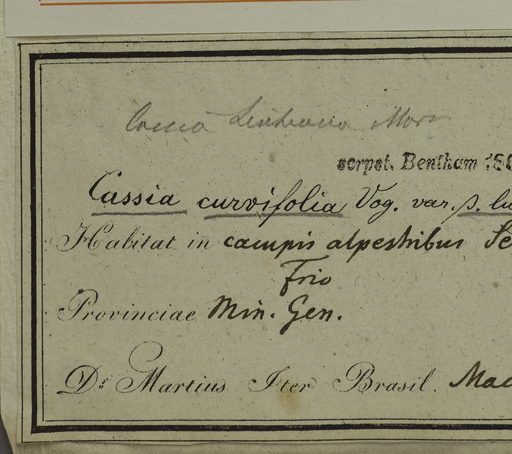 Cassia Mart
scrpst. Bentham 18
Cassia curvifolia Vog. var. β. lu
Habitat in campis alpestribus Se
Frio
Provinciae Min. Gen.
Dr Martius Iter Brasil. Mac